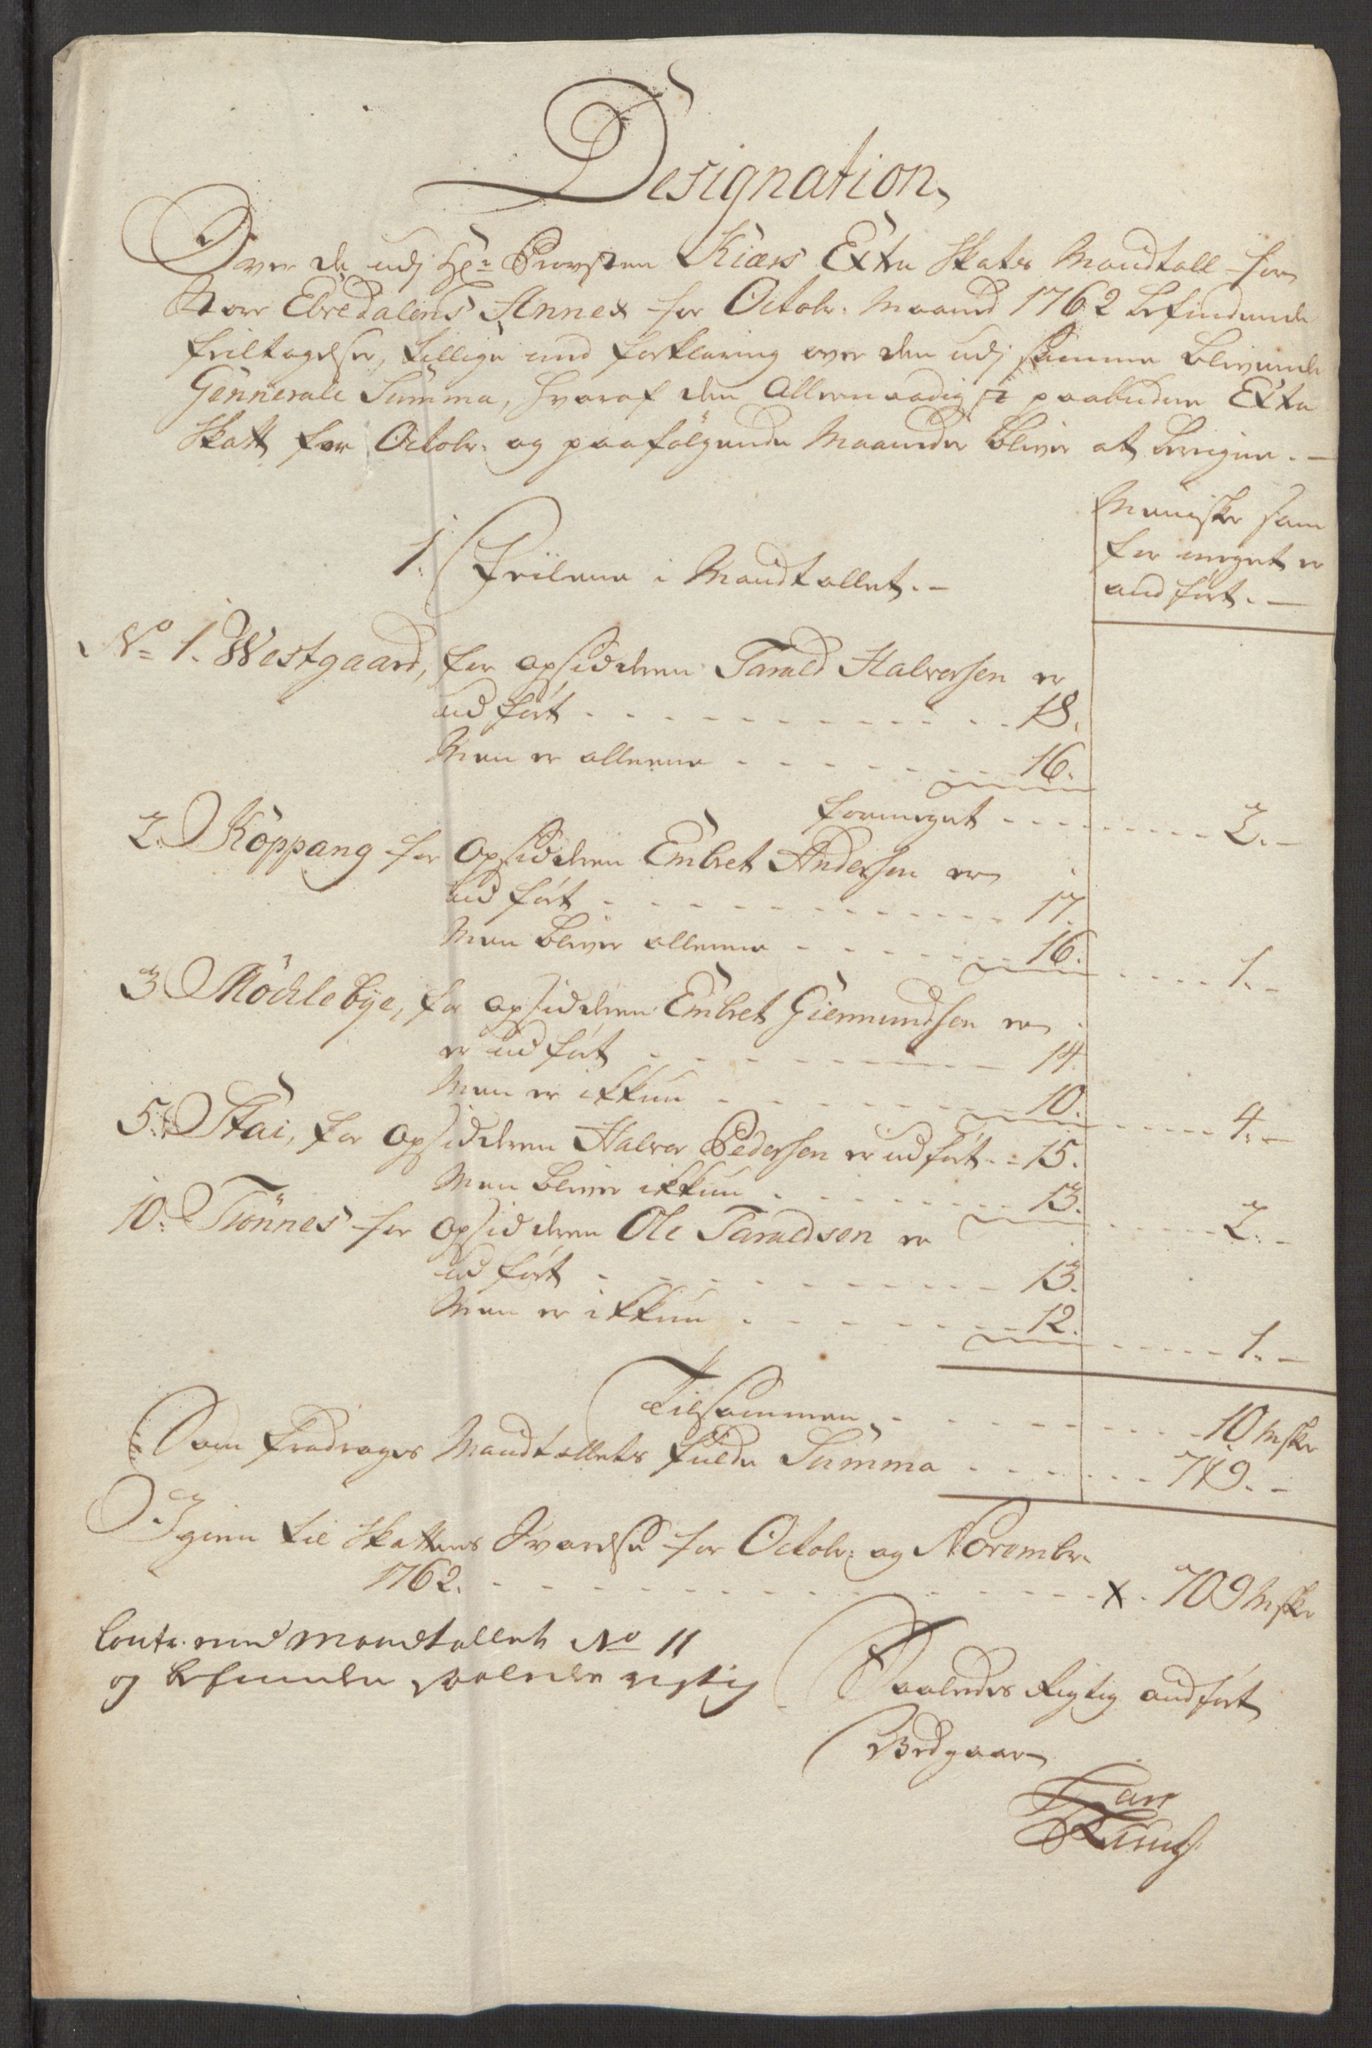 Designation
Over de udj Hr: Provsten Kiærs Extra Skats Mandtall for
Store Elvedalens Annex for Octobr: Maaned 1762 befindende
feiltagelser, tillige med forklaring over den udj samme blivende
Gennerale Summa, hvoraf den Allernaadigst paabudne Extra
Skatt for Octobr: og paafølgende Maaneder bliver at beregne. -
Meniske som
for meget er
andført. -
1. Feilene i Mandtallet. -
No 1. Westgaard, for opsidderen Tarald Halvorsen er
udført - - - 18.
Men er alleene - - - 16.
formeget - - - 2. -
2. Koppang for opsidderen Embret Andersen er
udført - - - 17.
Men bliver alleene - - - 16. - - - 1. -
3 Möchlebye, for opsidderen Embret Giermundsen er
er udført - - - 14.
Men er ikkun - - - 10. - - - 4. -
5. Stai, for opsidderen Halvor Pedersen er udført - - 15.
Men bliver ikkun - - - 13. - - - 2. -
10. Trönnes for opsidderen Ole Taraldsen er
udført - - - 13.
Men er ikkun - - - 12. - - - 1. -
Tilsammen - - - 10 Mske
Som fradrages Mandtallets fulde Summa - - - 719. -
Igien til Skattens Svarelse for Octobr: og Novembr:
1762. - - - x. 709 Mske
Conf: med Mandtallet No 11
og befunden saaledes rigtig
Saaledes Rigtig andført
Vedgaar